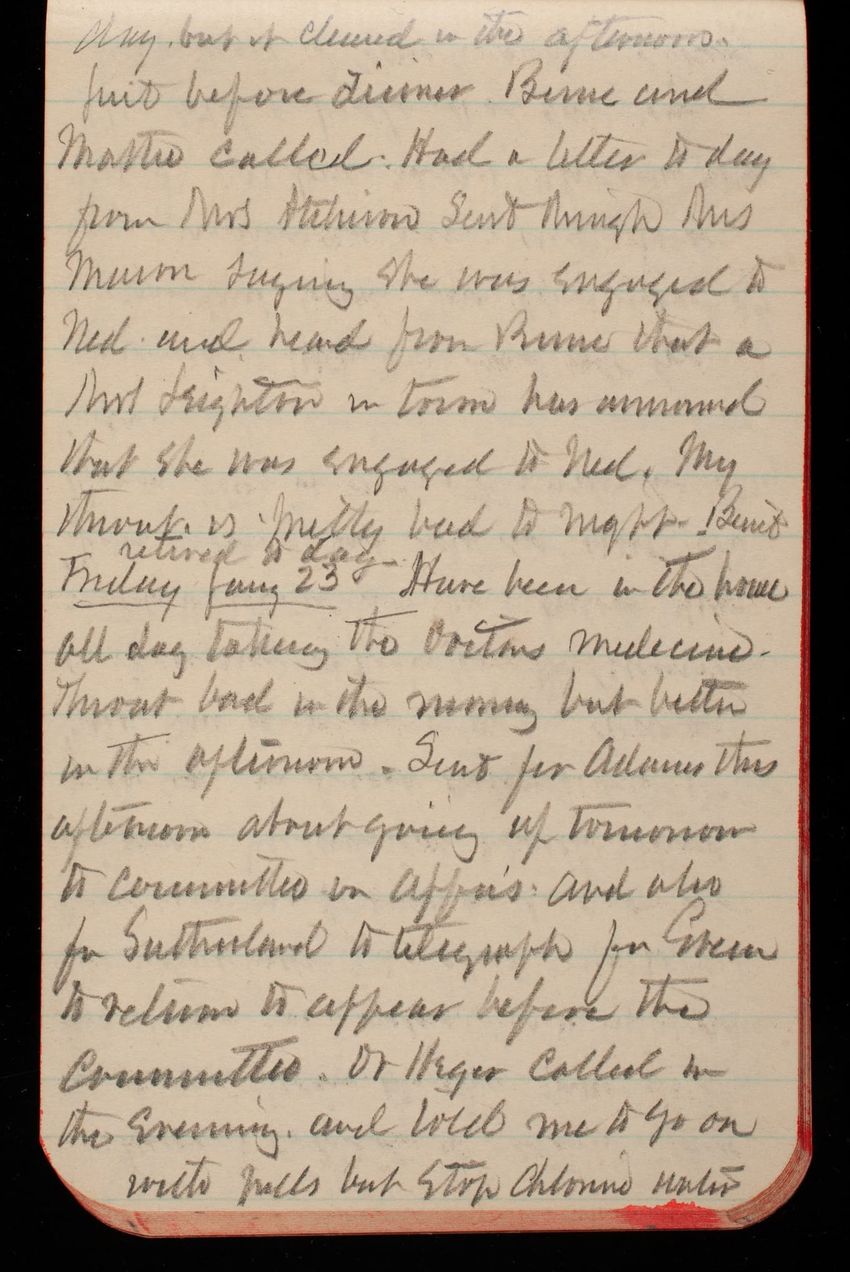 day. but it cleared in the afternoon.
Just before dinner. Berne and
called. Had a letter to day
from Mrs Atchison Sent through Mrs
Mason saying she was engaged to
Ned. and heard from Berne that a
Mrs Leighton in town has announced
that she was engaged to Ned. My
throat. is pretty bad to night.
retired to day
Friday Jany 23d Have been in the house
all day taking the Doctors medecine.
Throat bad in the morning but better
in the afternoon. Sent for Adams this
afternoon about going up tomorrow
to committee on and also
for Sutherland to telegraph for Green
to return to appear before the
Committee. Dr Heger called in
the Evening. and told me to go on
with pills but stop Chlorine water